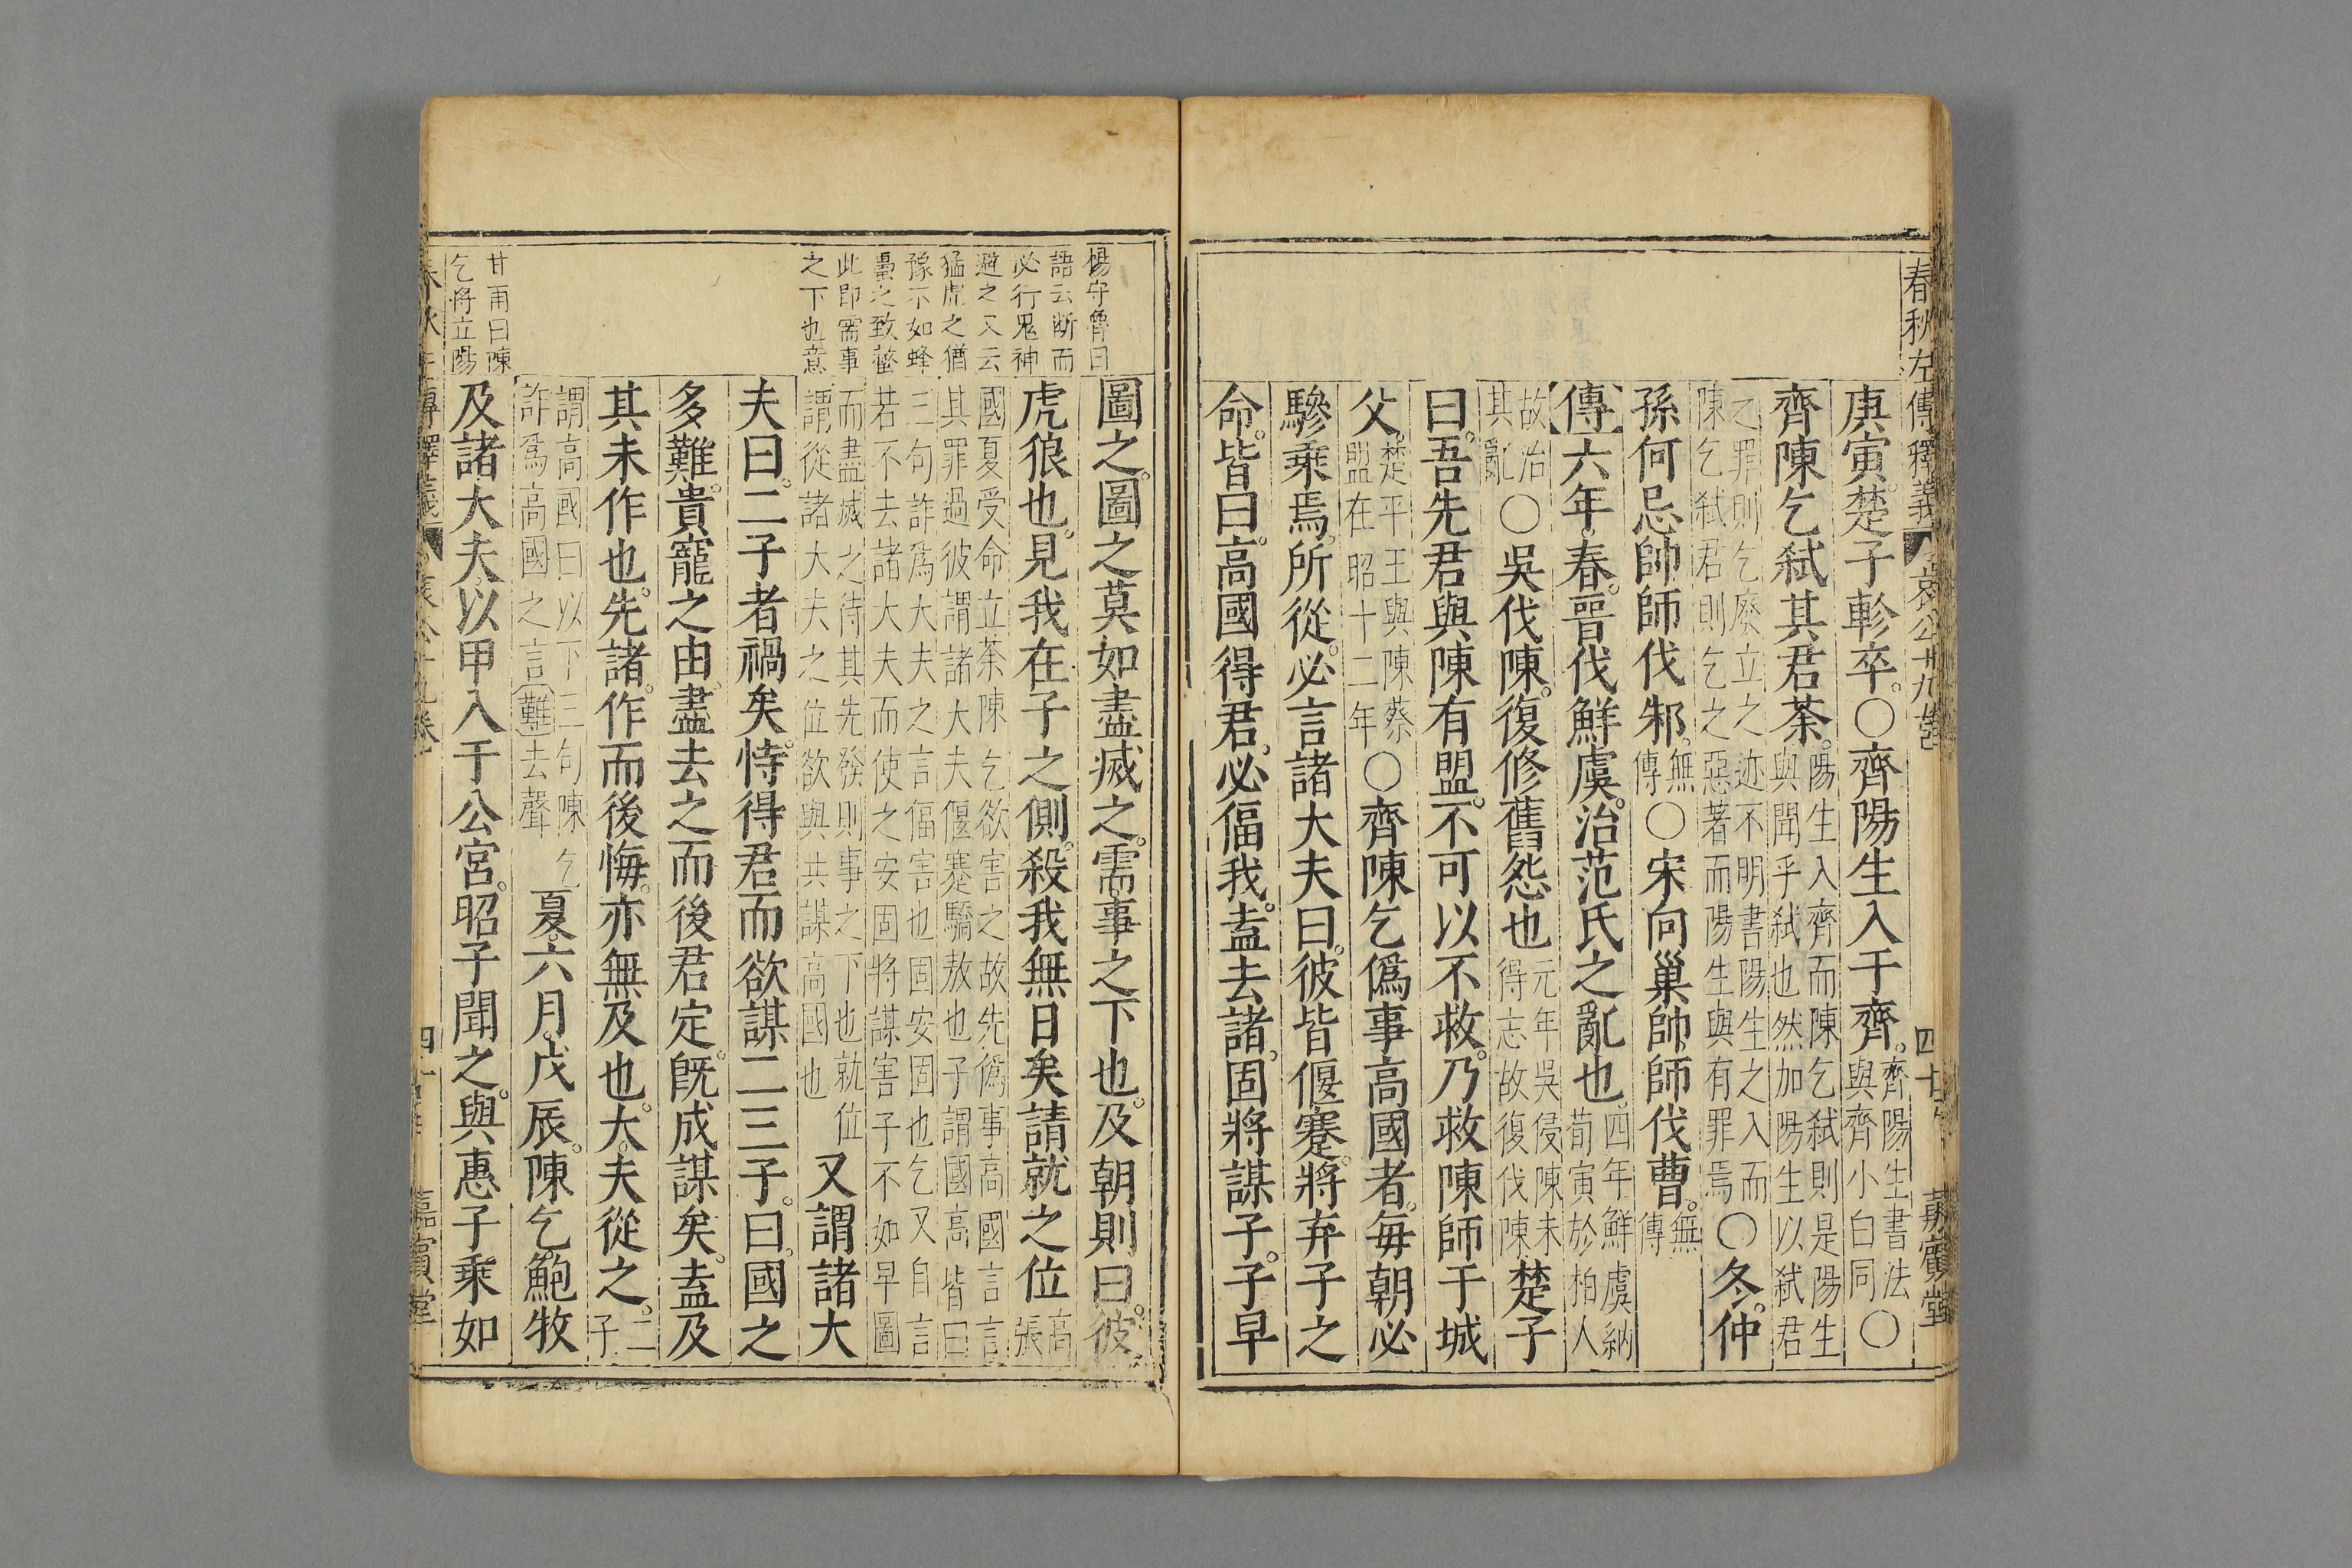 春秋左傳釋義 哀公十九卷 四十 嘉賓堂
庚寅楚子軫卒。○齊陽生入于齊。齊陽生書法與齊小白同○
齊陳乞弑其君荼。陽生入齊而陳乞弑則是陽生與聞乎弑也然加陽生以弑君
之罪則乞廢立之迹不明書陽生之入而陳乞弑君則乞之惡著而陽生與有罪焉○冬。仲
孫何忌帥師伐邾。無傳○宋向巢帥師伐曹。無傳
傳六年。春。晉伐鮮虞。治范氏之亂也四年鮮虞納荀寅於柏人
故治其亂○吳伐陳。復修舊怨也元年吳侵陳未得志故復伐陳楚子
曰。吾先君與陳有盟。不可以不救。乃救陳師于城
父。楚平王與陳蔡盟在昭十二年○齊陳乞僞事高國者。每朝必
驂乘焉。所從。必言諸大夫曰。彼皆偃蹇。將弃子之
命。皆曰。高國得君。必偪我。盍去諸。固將謀子。子早
楊守魯曰
語云断而
必行鬼神
避之又云
猛虎之猶
豫不如蜂
蠆之致螫
此即需事
之下也意
圖之。圖之莫如盡滅之。需。事之下也。及朝則曰。彼
虎狼也。見我在子之側。殺我無日矣請就之位高張
國夏受命立荼陳乞欲害之故先僞事高國言其罪過彼謂諸大夫偃蹇驕敖也子謂國高皆曰
三句詐爲大夫之言偪害也固安固也乞又自言若不去諸大夫而使之安固將謀害子不如早圖
而盡滅之待其先發則事之下也就位謂從諸大夫之位欲與共謀高國也又謂諸大
夫曰。二子者禍矣。恃得君而欲謀二三子。曰。國之
多難。貴寵之由。盡去之而後君定。旣成謀矣。盍及
其未作也。先諸。作而後悔。亦無及也。大夫從之。二子
謂高國曰以下三句陳乞詐爲高國之言難去聲夏。六月。戊辰。陳乞。鮑牧
甘甫曰陳
乞將立陽
及諸大夫以甲入于公宮。昭子聞之。與惠子乘如